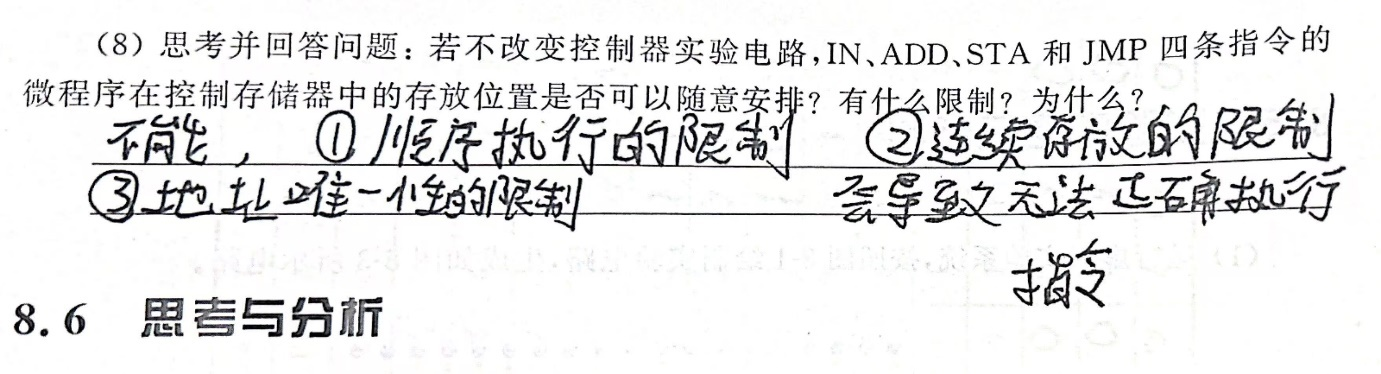 （8）思考并回答问题：若不改变控制器实验电路，IN、ADD、STA 和 JMP 四条指令的
微程序在控制存储器中的存放位置是否可以随意安排？有什么限制？为什么？
不能，①顺序执行的限制 ②连续存放的限制
③地址唯一性的限制 会导致无法正确执行
指令
8.6 思考与分析